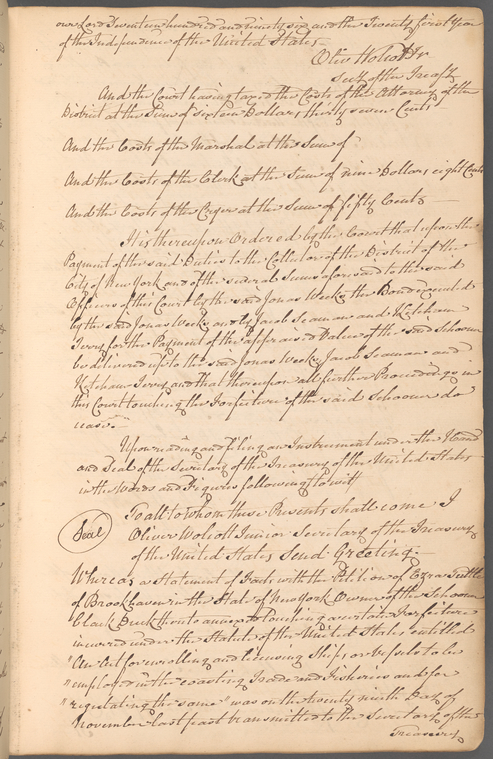 our Lord Seventeen hundred and ninety six and the Twenty first Year
of the Independence of the United States
Oliv Wolcott Jr
Secy of the Treasy
And the Court having taxed the Costs of the Attorney of the
District at the Sum of Sixteen Dollars thirty seven Cents
And the Costs of the Marshal at the Sum of
And the Costs of the Clerk at the Sum of nine Dollars eight Cents
And the Costs of the Cryer at the Sum of fifty Cents
It is thereupon Ordered by the Court that upon the
Payment of the said Duties to the Collector of the District of the
City of New York and of the several Sums aforesaid to the said
Officers of this Court by the said Jonas Weeks the Bond executed
by the said Jonas Weeks and by Jacob Seaman and Ketcham
Terry for the Payment of the appraised Value of the said Schooner
be delivered up to the said Jonas Weeks, Jacob Seaman and
Ketcham Terry and that thereupon all further Proceedings in
this Court touching the Forfeiture of the said Schooner do
cease.
Upon reading and filing an Instrument under the Hand
and Seal of the Secretary of the Treasury of the United States
in the Words and Figures following to wit
To all to whom these Presents shall come I
Seal
Oliver Wolcott Junior Secretary of the Treasury
of the United States Send Greeting:
Whereas a Statement of Facts with the Petition of Ezra Tuttle
of Brookhaven in the State of New York Owner of the Schooner
Black Duck thereto annexed touching a certain Forfeiture
incurred under the Statute of the United States entitled
"An Act for enrolling and licensing Ships or Vessels to be
"employed in the coasting Trade and Fisheries and for
"regulating the same" was on the twenty ninth Day of
November last past transmitted to the Secretary of the
Treasury